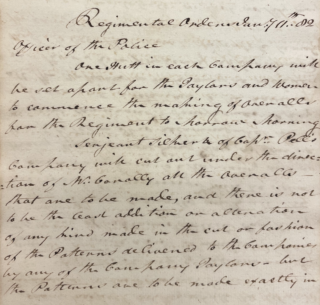 Regimental Orders Jany 11th 82
Officer of the Police
One Hutt in each Company will
be set apart for the Taylors and Women
to commence the making of Overalls
for the Regiment to Morrow Morning
Sergeant of Capt.
Company will cut out under the direc
tion of Mr. Conally all the overalls
that are to be made, and there is not
to be the least addition or alteration
of any kind made in the cut or fashion
of the Patterns delivered to the Companies
by any of the Company Taylors but
the Patterns are to be made exactly in